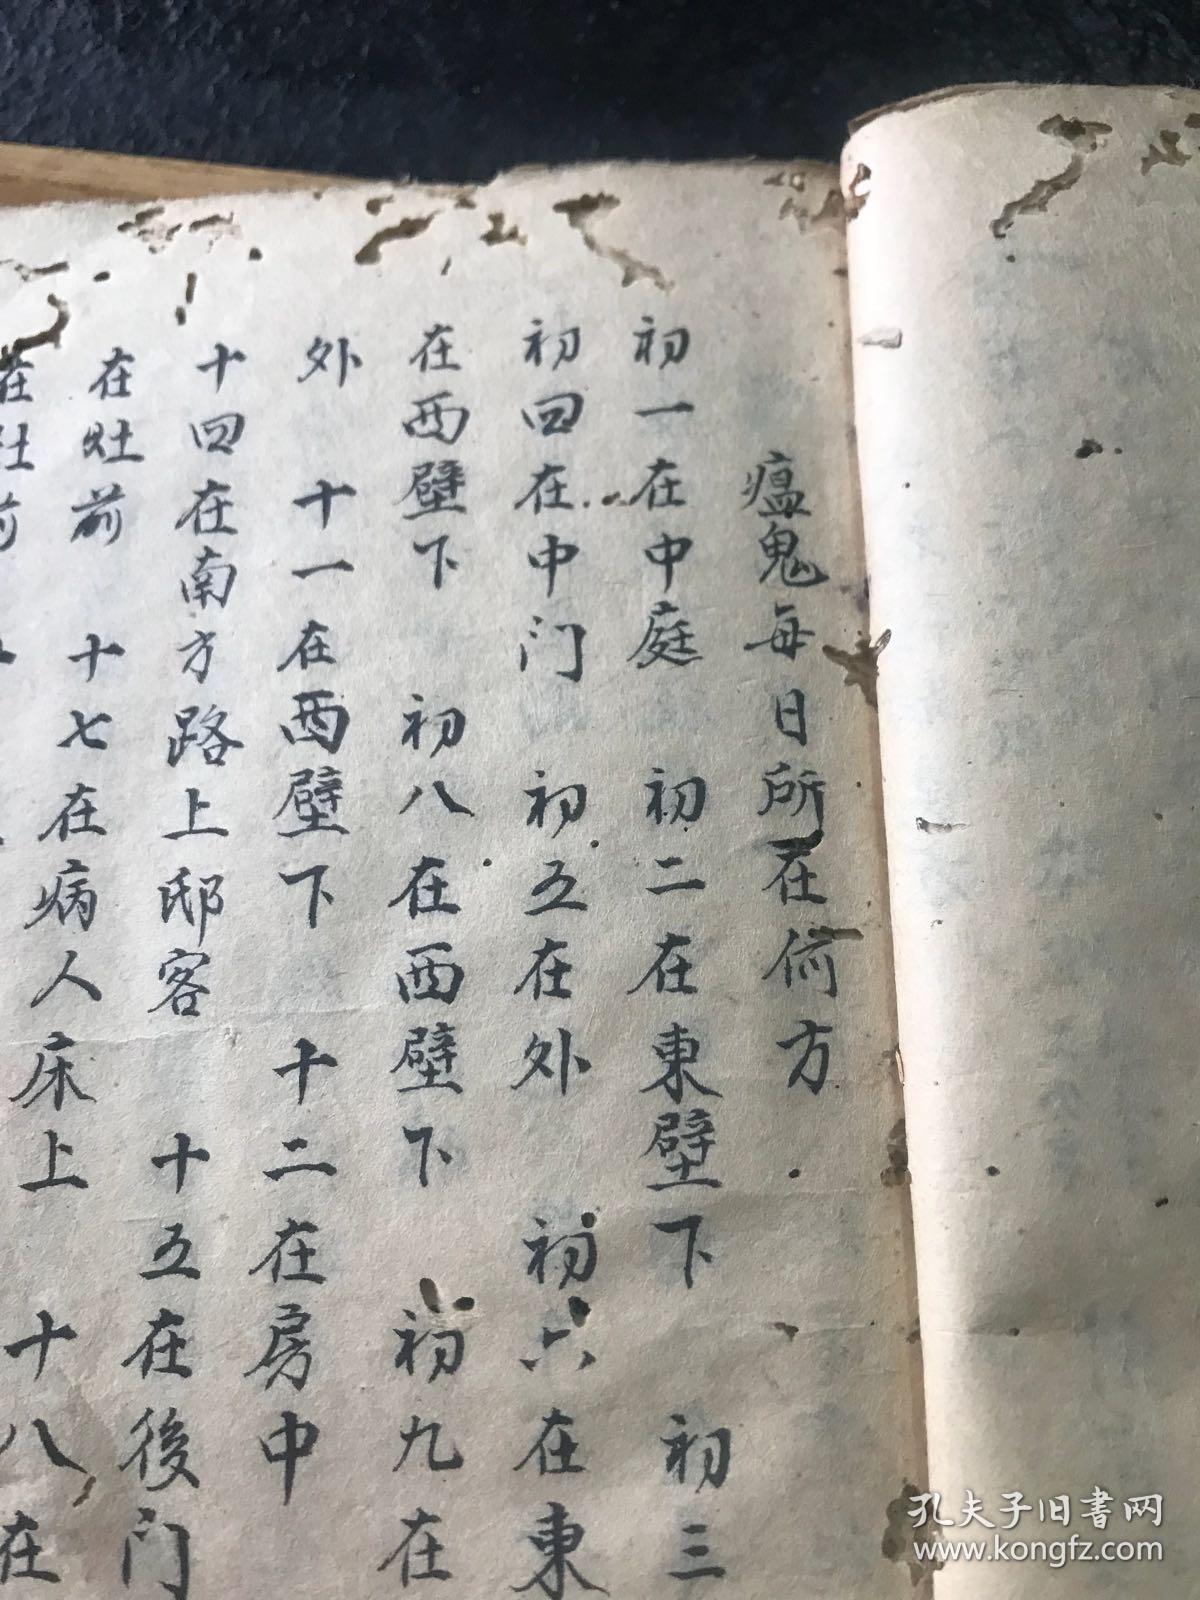 瘟鬼每日所在何方
初一在中庭 初二在東壁下 初三
初四在中门 初五在外 初六在東
在西壁下 初八在西壁下 初九在
外 十一在西壁下 十二在房中
十四在南方路上邸客 十五在後门
在灶前 十七在病人床上 十八在
在灶前
孔夫子旧书网
www.kongfz.com